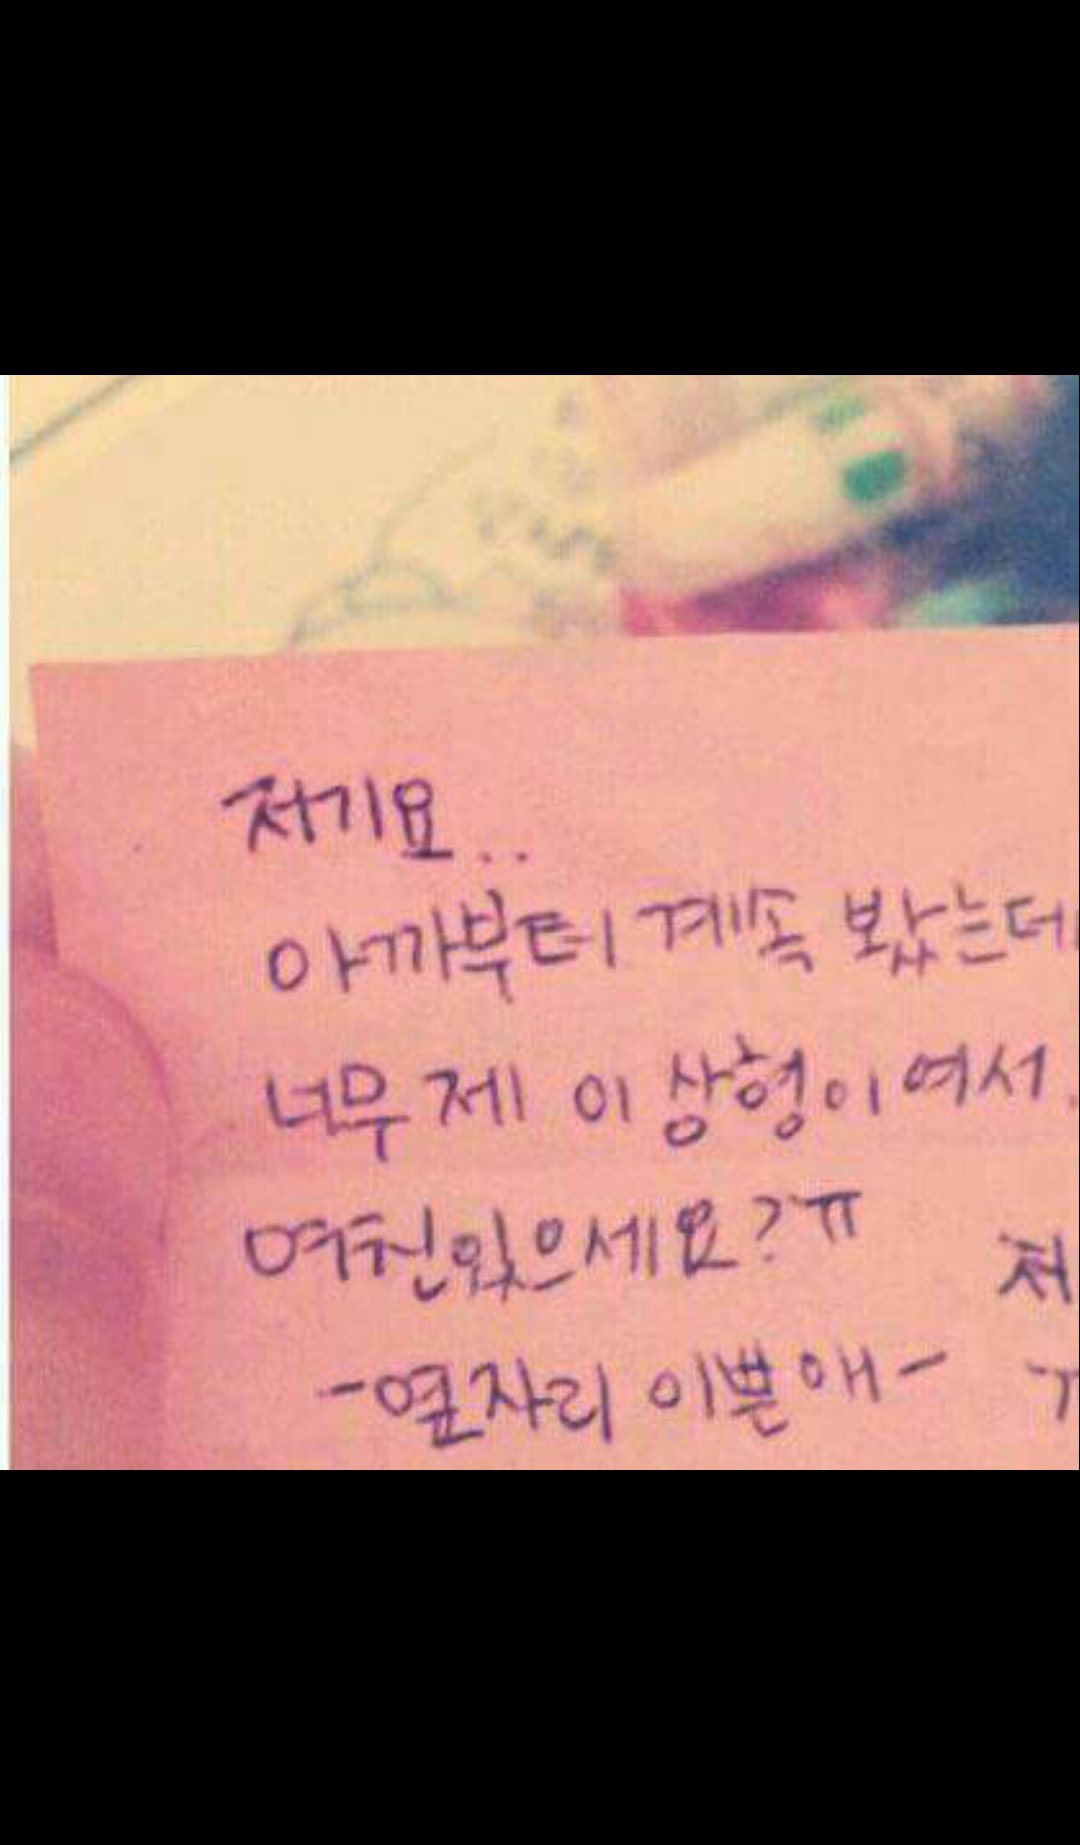 저기요..
아까부터 계속 봤는데
너무 제 이상형이여서.
여친있으세요?ㅠ
-옆자리 이쁜애-